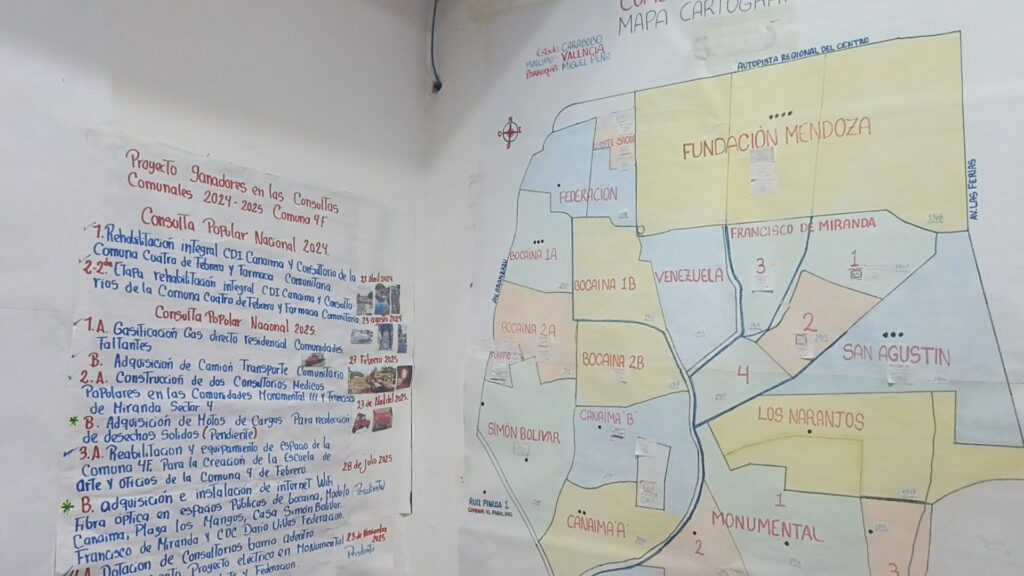 Proyecto ganadores en las Consultas
Comunales 2024-2025 Comuna 4F
Consulta Popular Nacional 2024.
1. Rehabilitación integral CDI Canaima y Consultorio de la
Comuna Cuatro de Febrero y Farmacia Comunitaria.
21 Abril 2024
2. 2da Etapa rehabilitación integral CDI Canaima y Consulto
rios de la Comuna Cuatro de Febrero y Farmacia Comunitaria.
25 agosto 2024
Consulta Popular Nacional 2025.
1.A. Gasificación Gas directo residencial Comunidades
Faltantes
27 Febrero 2025
B. Adquisición de Camión Transporte Comunitario
2.A. Construcción de dos Consultorios Medicos
Populares en las Comunidades Monumental III y Francisco
de Miranda Sector 4
23 de Abril del 2025.
B. Adquisición de Motos de Cargas Para recolección
de desechos Solidos (Pendiente)
3.A. Reabilitación y equipamiento de espacio de la
Comuna 4F Para la Creación de la Escuela de
arte y oficios de la Comuna 4 de Febrero.
28 de julio 2025
B. adquisición e instalación de internet Wifi
Fibra óptica en espacios Públicos de bocaina, Modulo (Pendiente)
Canaima, Plaza los Mangos, Casa Simón Bolívar.
Francisco de Miranda y CDC Dario Vivas Federación.
4.A. Dotacion de Consultorios barrio adentro
23 de Noviembre
2025
Proyecto eléctrico en Monumental
Pendiente
y Federacion.
MAPA CARTOGRAF
Estado: CARABOBO
MUNICIPIO: VALENCIA
Parroquia: MIGUEL PEÑA
AUTOPISTA REGIONAL DEL CENTRO
FUNDACIÓN MENDOZA
AV. LAS FERIAS
FEDERACIÓN
FRANCISCO DE MIRANDA
BOCAINA 1A
BOCAINA 1B
VENEZUELA
3
1
2
4
BOCAINA 2A
BOCAINA 2B
SAN AGUSTIN
SIMÓN BOLIVAR
CANAIMA "B"
LOS NARANJOS
RUIZ PINEDA 1
CANAIMA "A"
1
MONUMENTAL
2
3